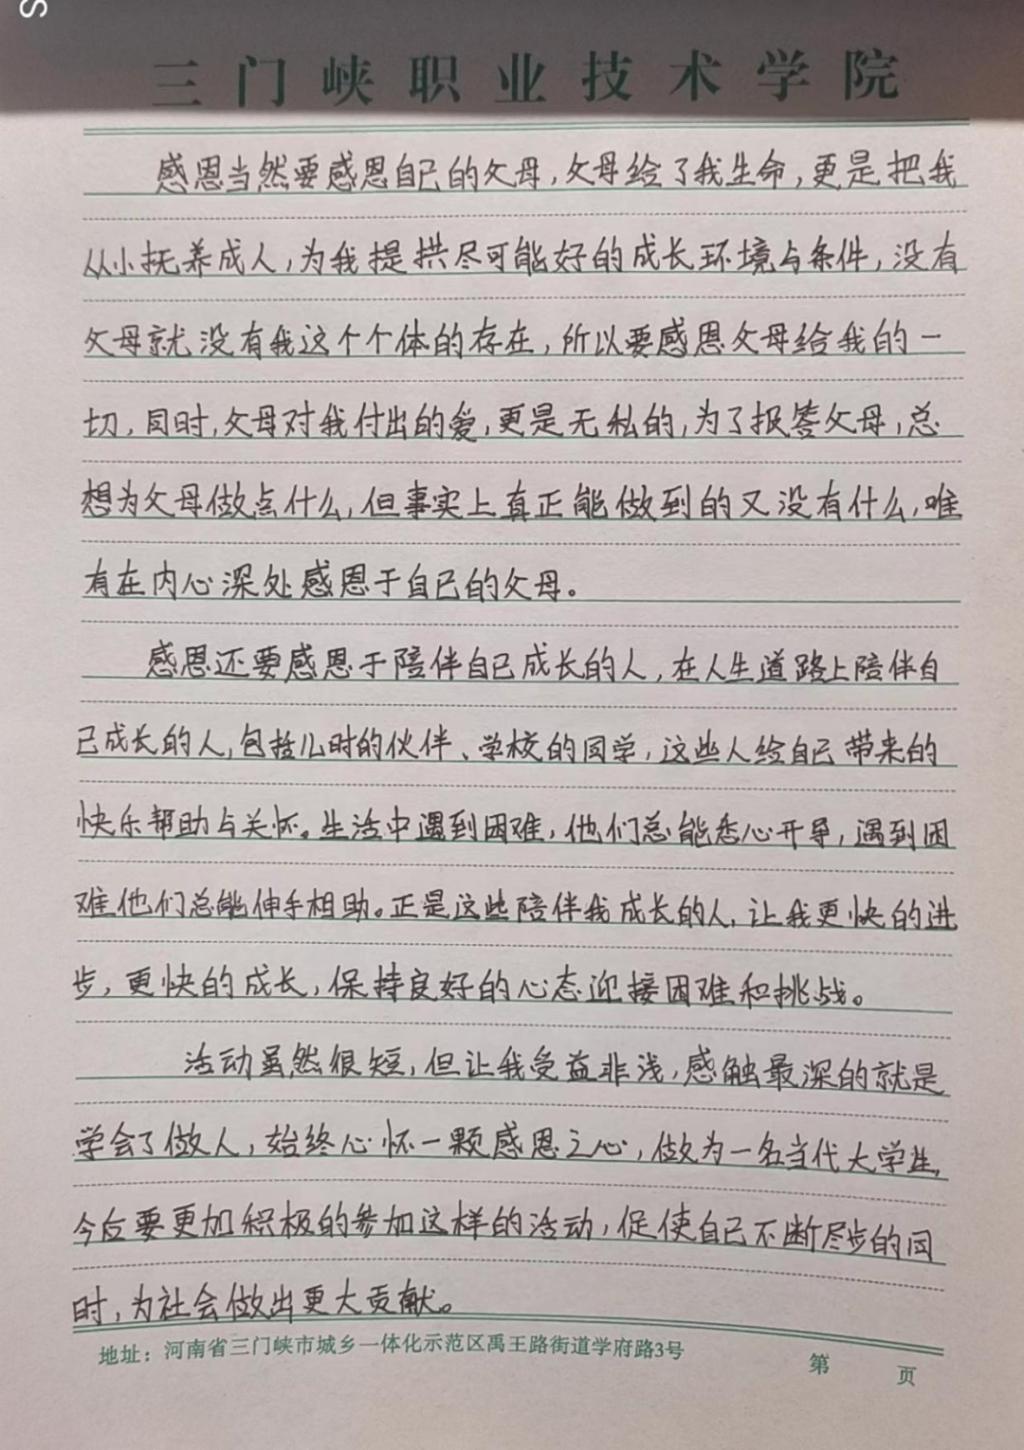 三门峡职业技术学院
感恩当然要感恩自己的父母,父母给了我生命,更是把我
从小抚养成人,为我提拱尽可能好的成长环境与条件,没有
父母就没有我这个个体的存在,所以要感恩父母给我的一
切,同时,父母对我付出的爱,更是无私的,为了报答父母,总
想为父母做点什么,但事实上真正能做到的又没有什么,唯
有在内心深处感恩于自己的父母。
感恩还要感恩于陪伴自己成长的人,在人生道路上陪伴自
己成长的人,包括儿时的伙伴、学校的同学,这些人给自己带来的
快乐帮助与关怀。生活中遇到困难,他们总能悉心开导,遇到困
难他们总能伸手相助。正是这些陪伴我成长的人,让我更快的进
步,更快的成长,保持良好的心态迎接困难和挑战。
活动虽然很短,但让我受益非浅,感触最深的就是
学会了做人,始终心怀一颗感恩之心,做为一名当代大学生,
今后要更加积极的参加这样的活动,促使自己不断进步的同
时,为社会做出更大贡献。
地址:河南省三门峡市城乡一体化示范区禹王路街道学府路3号
第 页